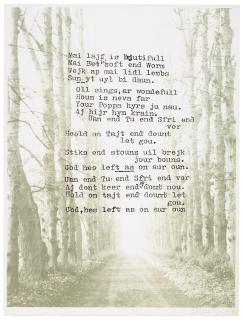 Mai lajf is bjutifull
Mai Bet soft end Worm
Wejk ap mai lidl lembs
Sun yt uyl bi daun.
Oll sings, ar wondefull
Houm is neva far
Your Poppa hyrs ju nau.
Aj hijr hym krain.
Uan end Tu end Sfri end
vor
Hoold on Tajt end dount
let gou.
Stiks end stouns uil brejk
jour bouns.
God hes left as on aur oun
Uan end Tu end Sfri end vor
Aj dont keer end dont nou.
Hold on tajt end dount let
gou.
God, hes left as on aur oun